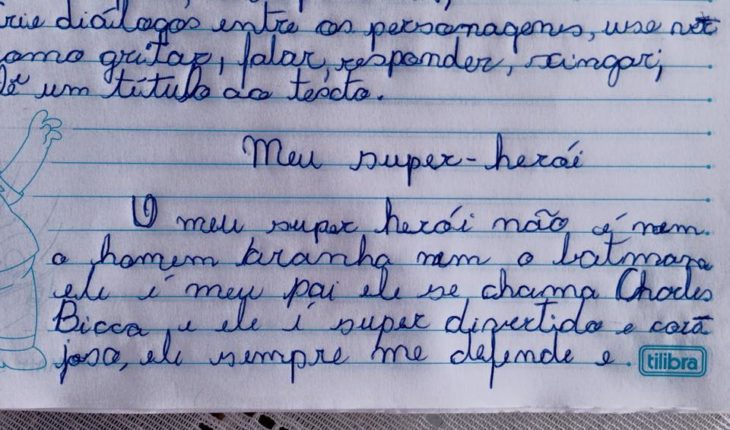 rie diálogos entre os personagens, use ver
omo gritar, falar, responder, xingar;
Dê um título ao texto.
Meu super-herói
O meu super herói não é nem
o homem aranha nem o batmam
ele é meu pai ele se chama Charles
Bicca, e ele é super divertido e cora
joso, ele sempre me defende e.
tilibra